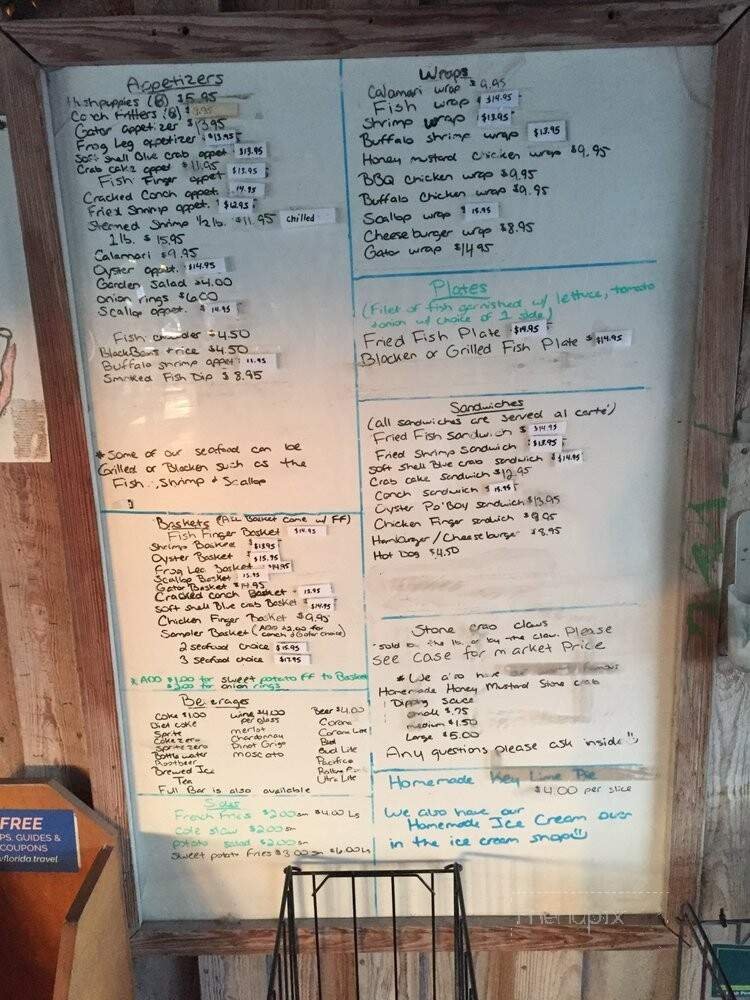 Appetizers
Hushpuppies (8) $5.95
Conch Fritters (8) $
Gator appetizer $13.95
Frog Leg appetizer $13.95
Soft shell Blue crab appet. $13.95
Crab cake appet $11.95
Fish Finger appet $13.95
Cracked Conch appet. 14.95
Fried Shrimp appet. $12.95
Steemed Shrimp 1/2 lb. $11.95 chilled
1 lb. $15.95
Calamari $9.95
Oyster appet. $14.95
Garden Salad $4.00
Onion rings $6.00
Scallop appet. $14.95
Fish chowder $4.50
Black Beans & rice $4.50
Buffalo shrimp appet. 11.95
Smoked Fish Dip $8.95
*Some of our seafood can be
Grilled or Blacken such as the
Fish, Shrimp & Scallop
Baskets (All Basket come w/ FF)
Fish Finger Basket $14.95
Shrimp Basket $13.95
Oyster Basket $15.95
Frog Leg Basket $14.95
Scallop Basket 15.95
Gator Basket $14.95
Cracked Conch Basket 15.95
Soft shell Blue crab Basket $14.95
Chicken Finger Basket $9.95
Sampler Basket (ADD $2.00 for
conch & Gator choice)
2 seafood choice $15.95
3 seafood choice $17.95
*ADD $1.00 for sweet potato FF to Basket
$2.00 for onion rings
Beverages
Coke $1.00 wine $4.00 Beer $4.00
Diet coke per glass Corona
Sprite merlot Corona Lite
Coke zero Chardonnay Bud
Sprite zero Pinot Grigo Bud Lite
Bottle water moscato Pacifico
Rootbeer
Brewed Ice Ultra Lite
Tea
Full Bar is also available
Sides
French fries $2.00 sm $4.00 Ls
cole slaw $2.00 sm
potato salad $2.00 sm
sweet potato fries $3.00 sm $6.00 Ls
Wraps
Calamari wrap $9.95
Fish wrap $14.95
Shrimp wrap $13.95
Buffalo shrimp wrap $13.95
Honey mustard chicken wrap $9.95
BBQ chicken wrap $9.95
Buffalo chicken wrap $9.95
Scallop wrap $15.95
Cheeseburger wrap $8.95
Gator wrap $14.95
Plates
(Filet of fish garnished w/ lettuce, tomato
& onion w/ choice of 1 side)
Fried Fish Plate $14.95
Blacken or Grilled Fish Plate $14.95
Sandwiches
(all sandwiches are served al carté)
Fried Fish Sandwich $14.95
Fried Shrimp Sandwich $13.95
Soft shell Blue crab sandwich $14.95
Crab cake sandwich $12.95
Conch sandwich $15.95
Oyster Po'Boy sandwich $13.95
Chicken Finger sandwich $9.95
Hamburger/Cheeseburger $8.95
Hot Dog $4.50
Stone crab claws
sold by the lb. or by the claw. Please
see case for market Price
*We also have our famous
Homemade Honey Mustard Stone crab
Dipping sauce
small $.75
medium $1.50
Large $5.00
Any questions please ask inside
Homemade Key Lime Pie
$4.00 per slice
We also have our
Homemade Ice Cream over
in the ice cream shop
FREE
PS, GUIDES &
COUPONS
wflorida.travel
menupix